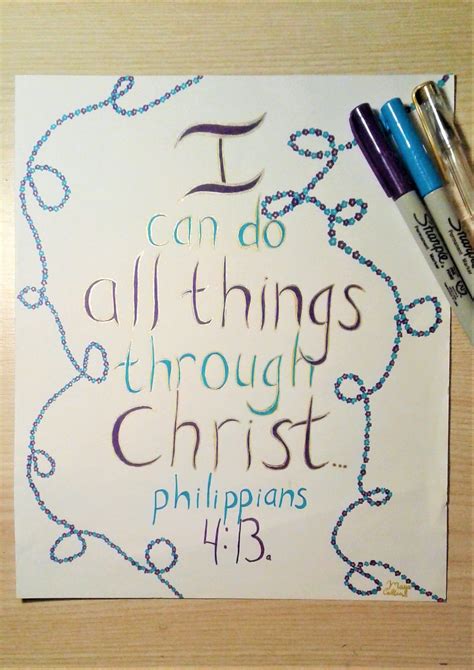 I
can do
all things
through
Christ...
philippians
4:13a
Sharpie
Sharpie